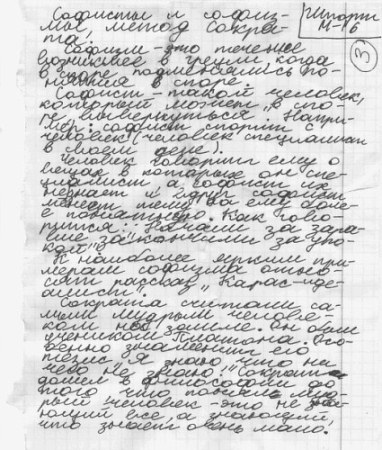 Софисты и софиз-
мы, метод Сокра-
та.
Шпорти
М-16
3
Софизм - это течение
возникшее в греции, когда
в споре подменялись по-
нятия в споре.
Софист - такой человек,
который может в спо-
ре вывернуться. Напри-
мер: софист спорит с
человек (человек специалист
в своем деле).
Человек говорит ему о
вещах в которых он спе-
циалист а софист их
незнает и вдруг софист
меняет тему на ему более
е понятную. Как гово-
рится: "Начали за здра-
вие закончили за упо-
кой".
К наиболее ярким при-
мерам софизма отно-
сят рассказ "Карась-иде-
алист".
Сократа считали са-
мым мудрым челове-
ком на земле. Он был
учеником Платона. Осо-
бенно знаменит его
тезис "Я знаю, что ни-
чего не знаю." Сократ
дошел в философии до
того что понял муд-
рый человек - это не зна-
ющий все, а знающий,
что знает очень мало.